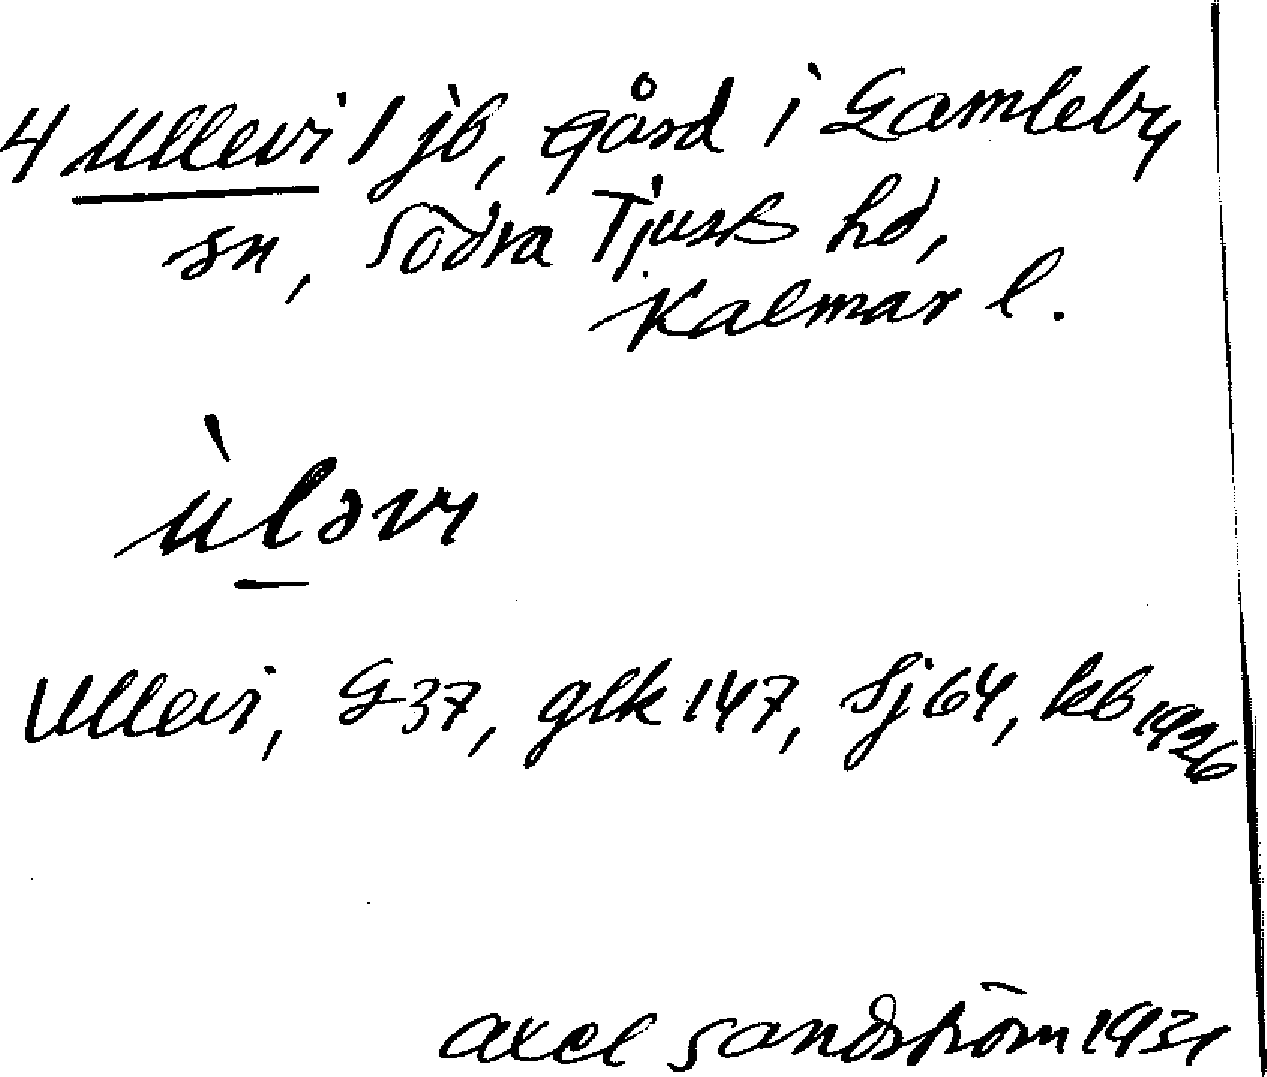 4 Ullevi 1 jb, gård i Gamleby
sn, Södra Tjust hd,
Kalmar l.
ùləvi
Ullevi, G 37, glk 147, Sj 64, kb 1926
Axel Sandström 1931